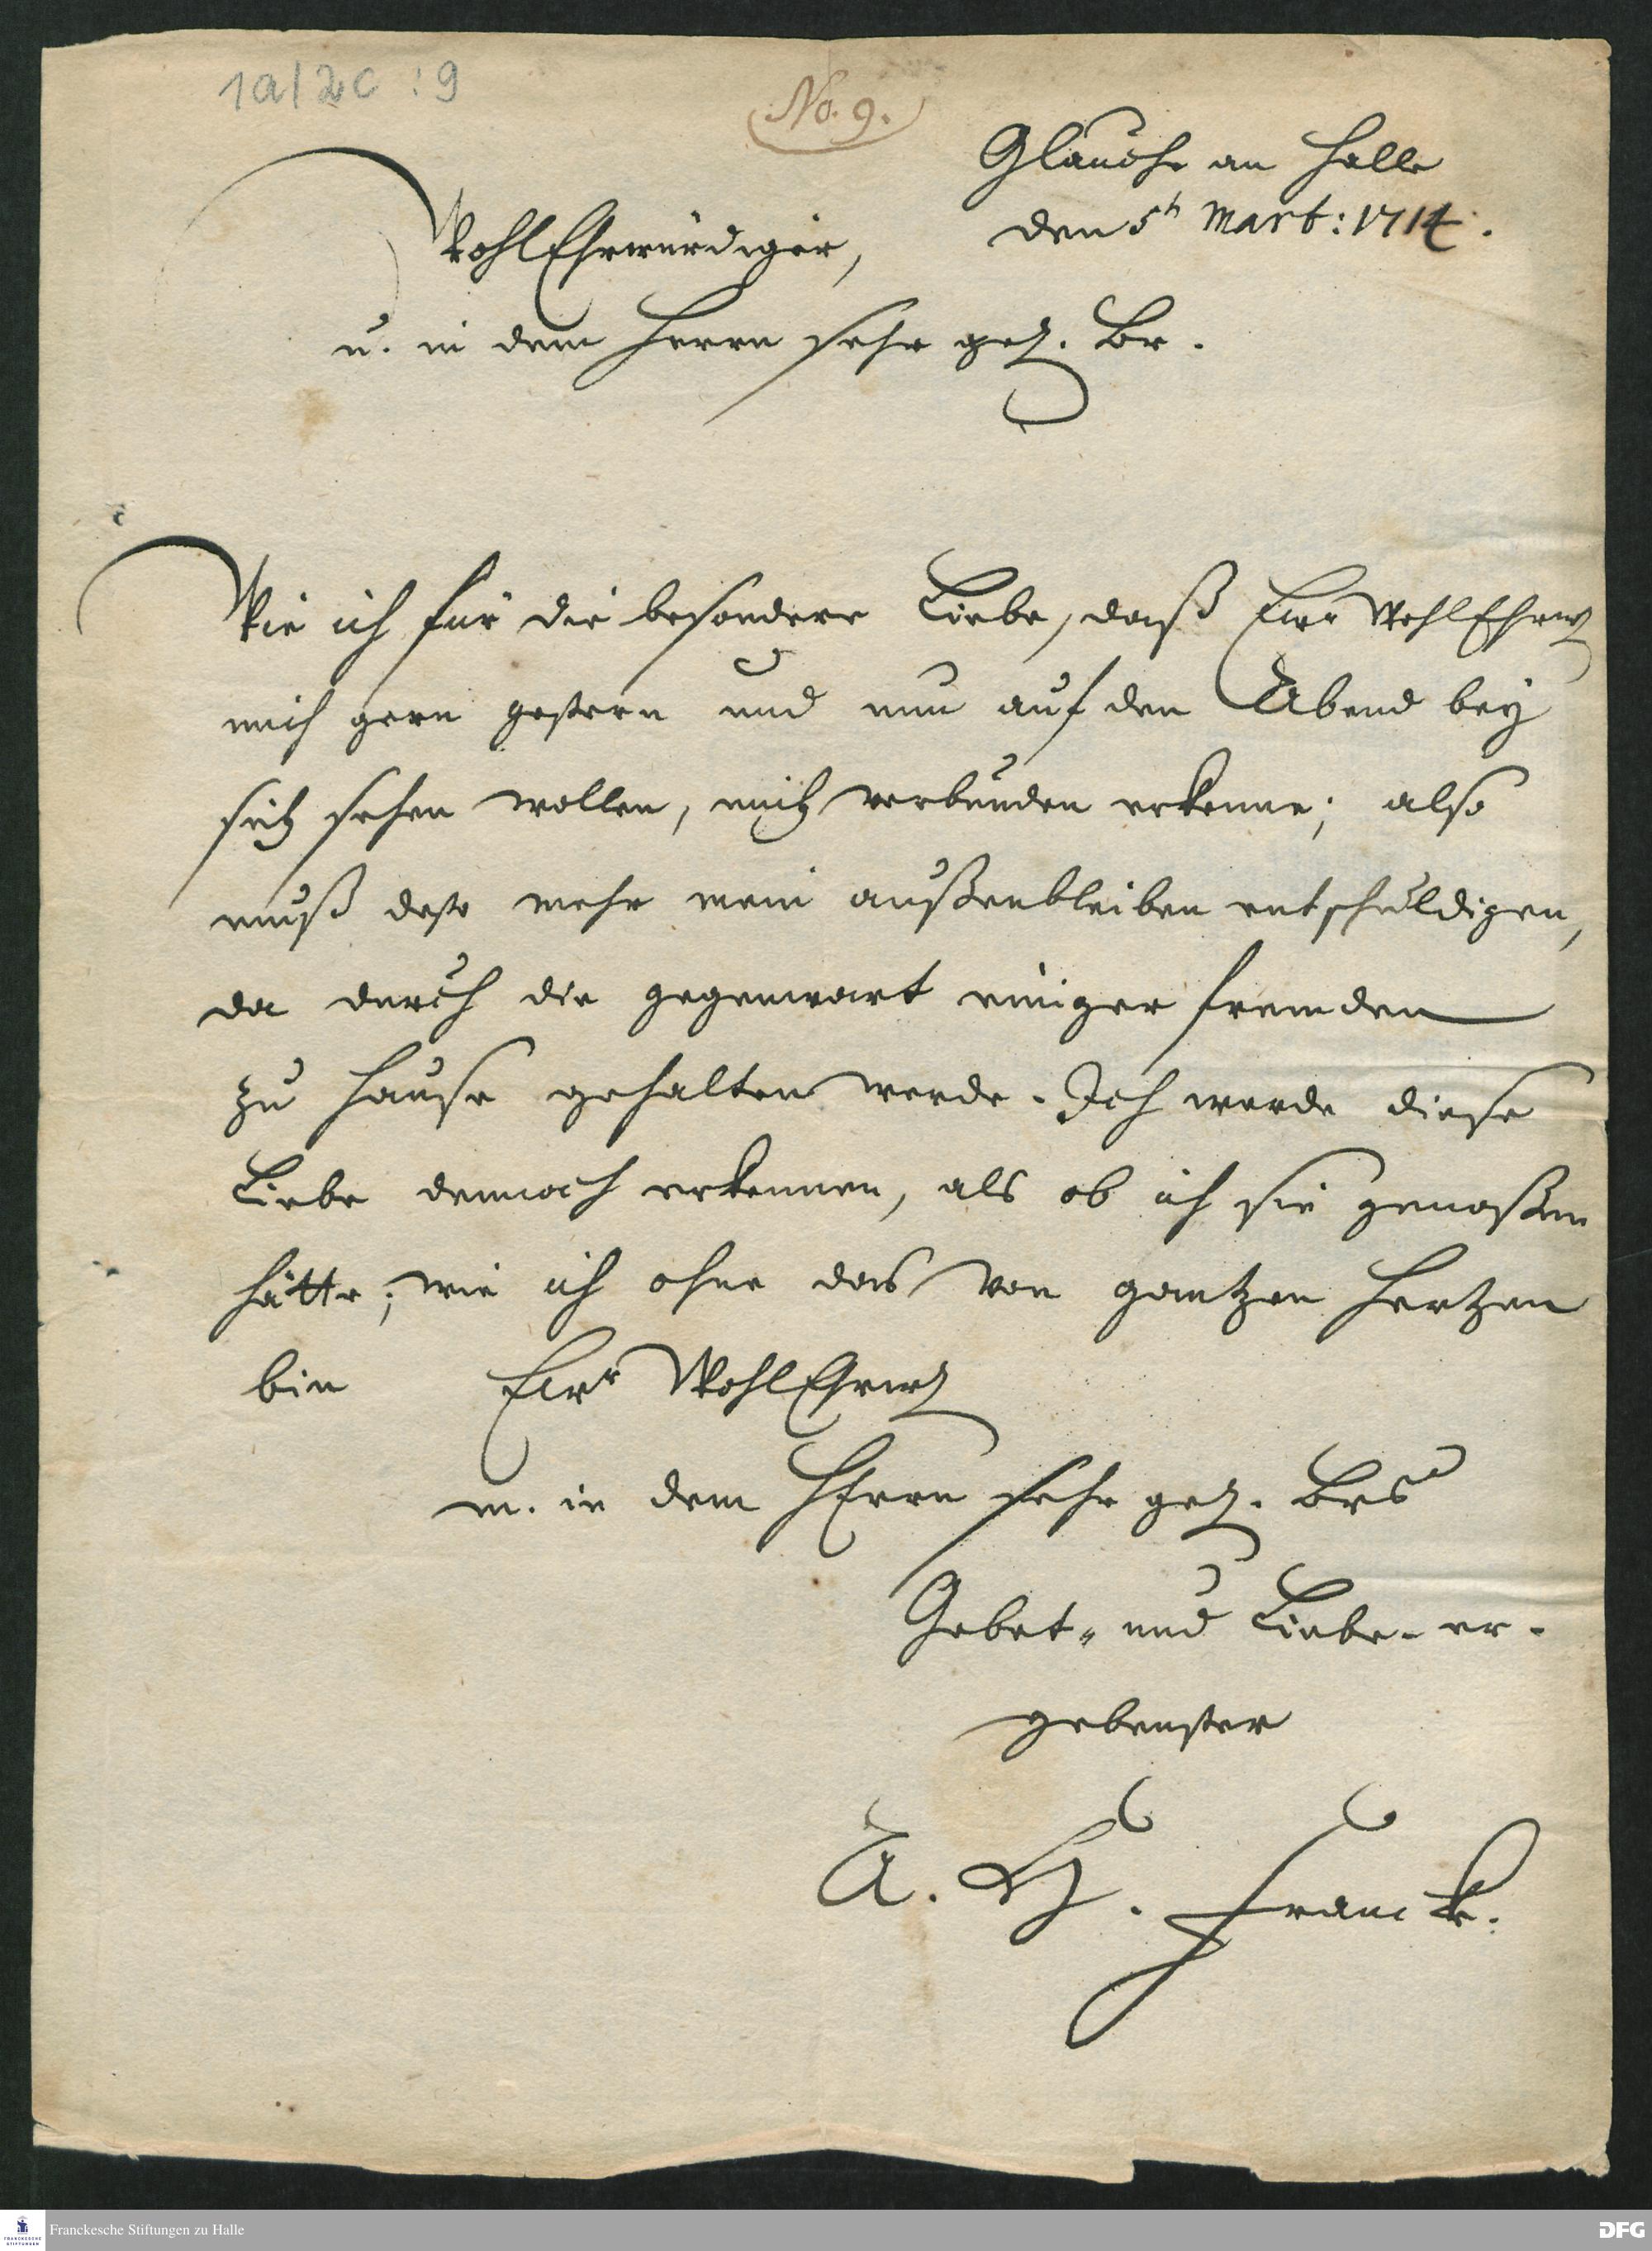 1a/2c : 9
No. 9.
Glaucha an Halle
den 5t Mart: 1714.
WohlEhrwürdiger,
u. in dem Herrn sehr gel. Br.
Wie ich für die besondere Liebe, daß Ewr WohlEhrw
mich gern gestern und nun auf den Abend bey
sich sehen wollen, mich verbunden erkenne; also
muß desto mehr mein außenbleiben entschuldigen,
da durch die gegenwart einiger fremden
zu Hause gehalten werde. Ich werde diese
Liebe dennoch erkennen, als ob ich sie genoßen
hätte; wie ich ohne das von gantzen Hertzen
bin Ewr WohlEhrw
m. in dem HErrn sehr gel. Brs
Gebet- und Liebe-er-
gebenster
A. H. Franck.
Franckesche Stiftungen zu Halle
FRANCKESCHE STIFTUNGEN
DFG